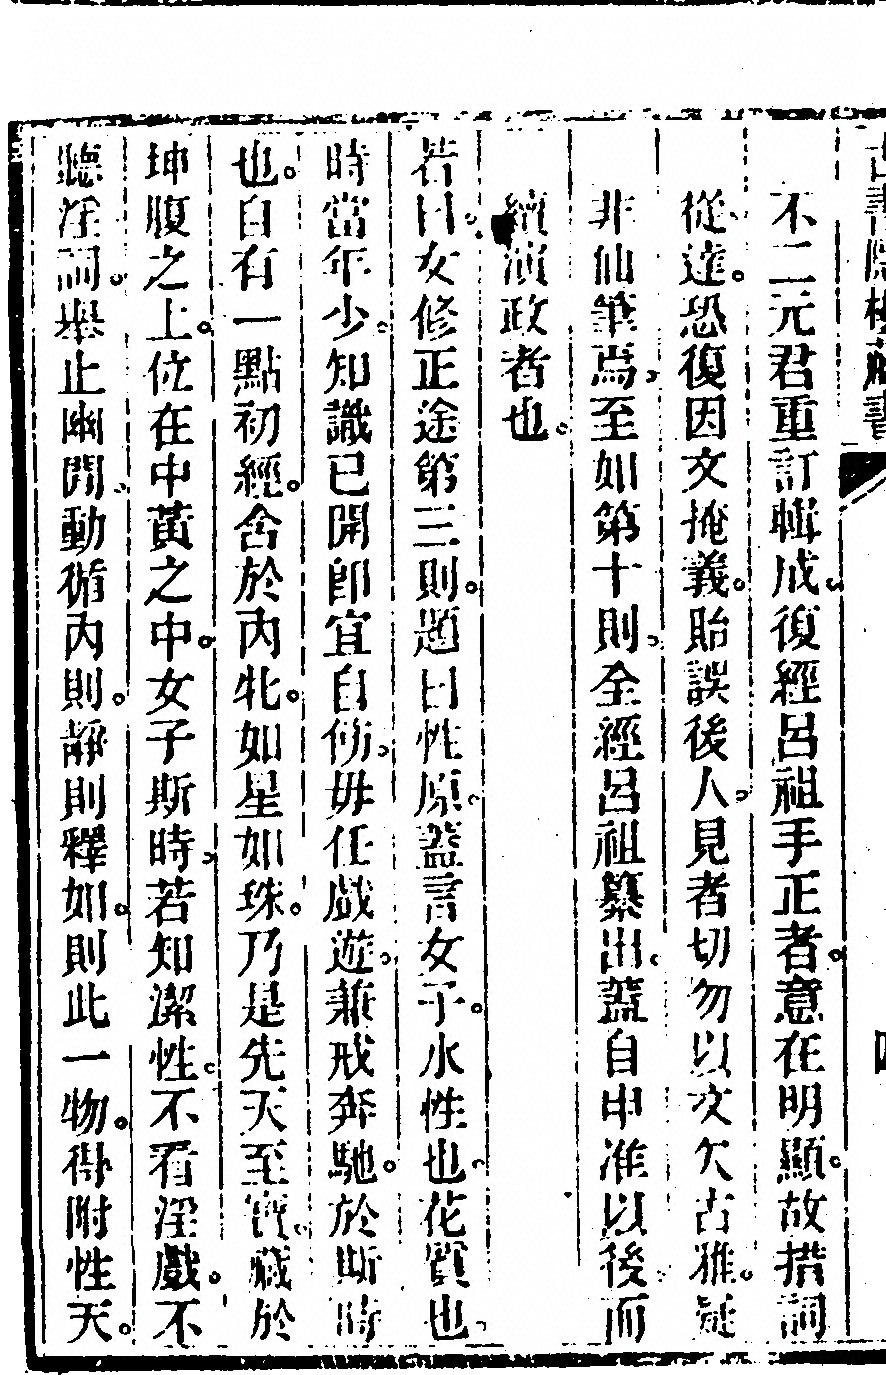 古書隱樓藏書
不二元君重訂輯成。復經呂祖手正者。意在明顯。故措詞
從達。恐復因文掩義。貽誤後人。見者切勿以文欠古雅。疑
非仙筆焉。至如第十則。全經呂祖纂出。蓋自申准以後而
續演政者也。
若曰。女修正途第三則。題曰性原。蓋言女子。水性也。花質也。
時當年少。知識已開。即宜自修。毋任戲遊。兼戒奔馳。於斯時
也。自有一點初經。含於內牝。如星如珠。乃是先天至寶。藏於
坤腹之上。位在中黃之中。女子斯時。若知潔性。不看淫戲。不
聽淫詞。舉止幽閒。動循內則。靜則釋如。則此一物。得附性天。